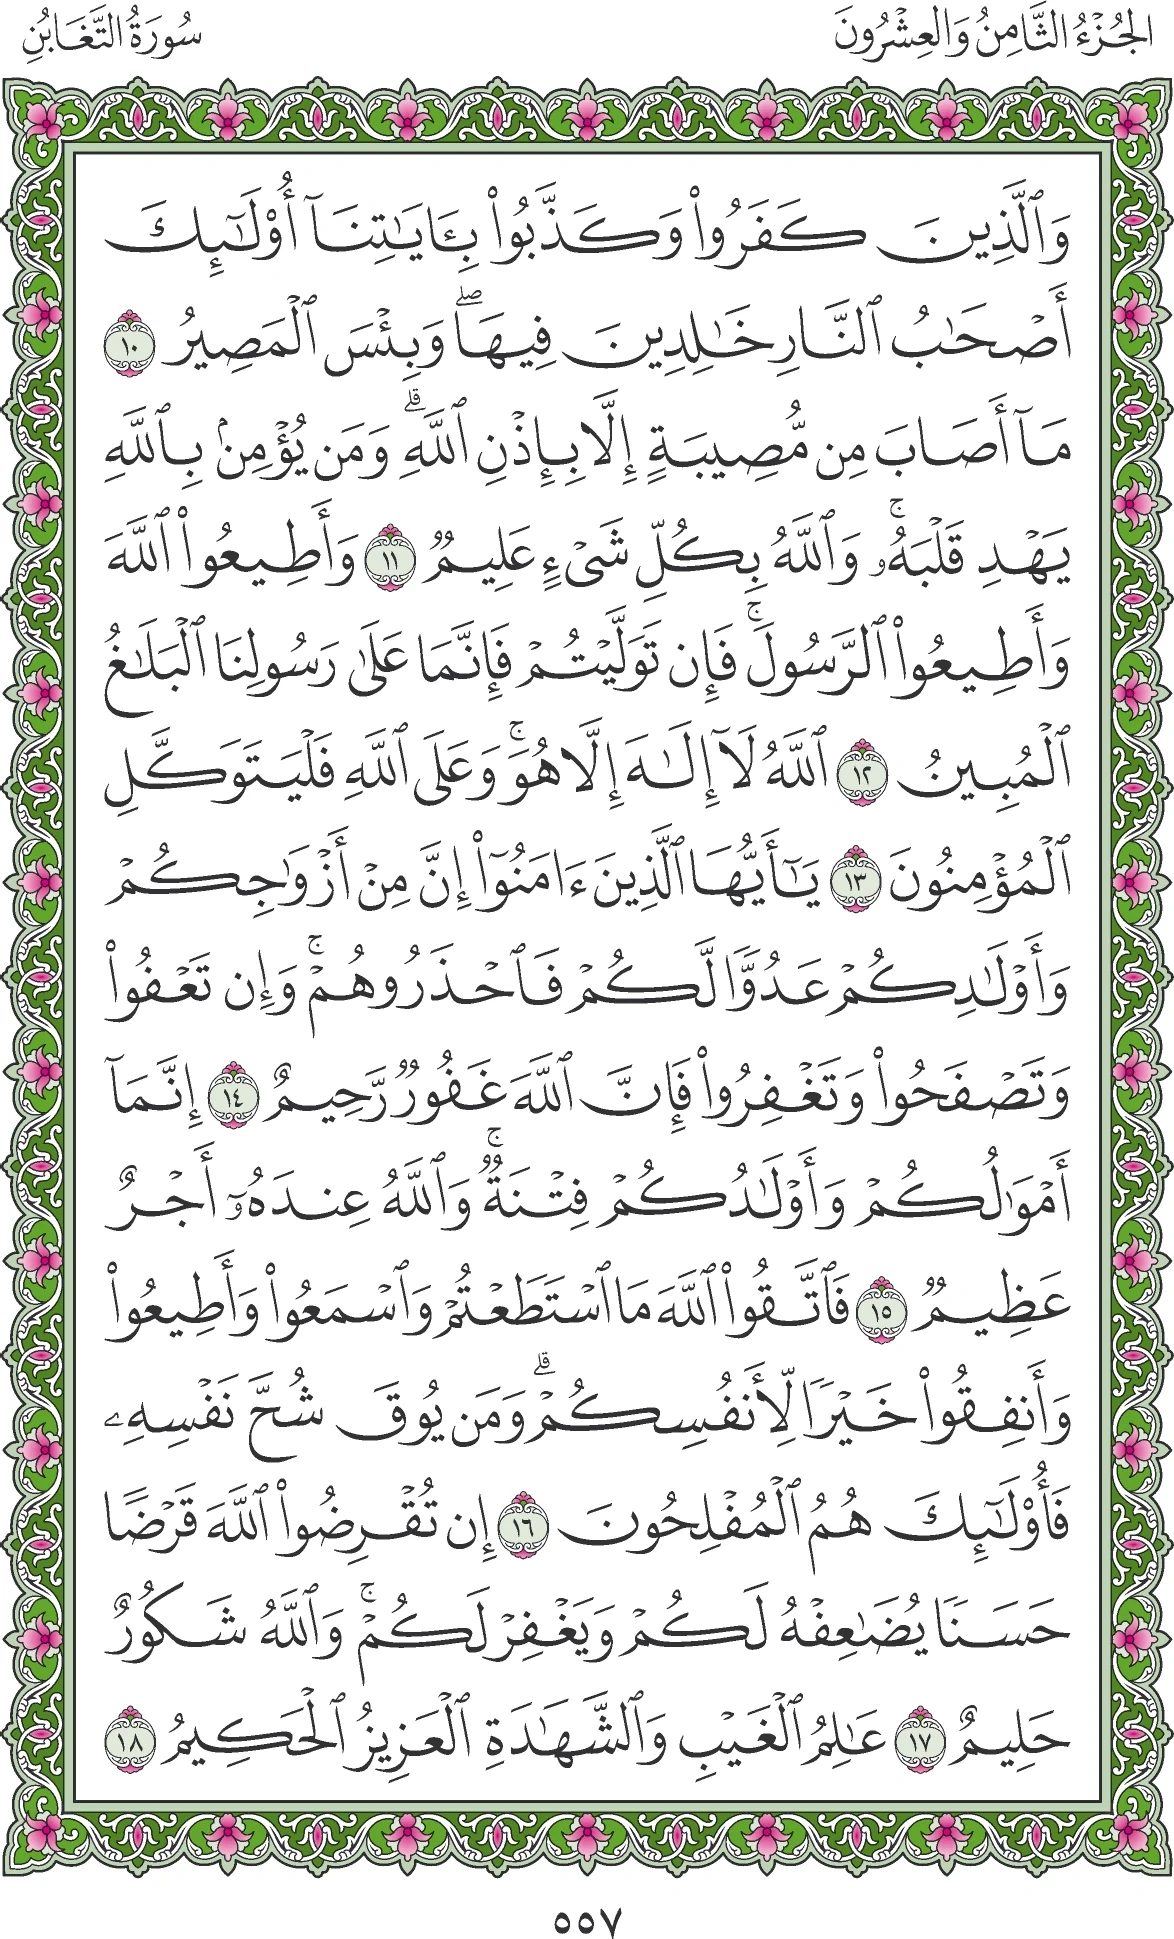 الجُزْءُ الثَّامِنُ وَالعِشْرُونَ
سُورَةُ التَّغَابُنِ
وَٱلَّذِينَ كَفَرُواْ وَكَذَّبُواْ بِـَٔايَٰتِنَآ أُوْلَٰٓئِكَ
أَصْحَٰبُ ٱلنَّارِ خَٰلِدِينَ فِيهَاۖ وَبِئْسَ ٱلْمَصِيرُ ١٠
مَآ أَصَابَ مِن مُّصِيبَةٍ إِلَّا بِإِذْنِ ٱللَّهِۗ وَمَن يُؤْمِنۢ بِٱللَّهِ
يَهْدِ قَلْبَهُۥۚ وَٱللَّهُ بِكُلِّ شَىْءٍ عَلِيمٌ ١١ وَأَطِيعُواْ ٱللَّهَ
وَأَطِيعُواْ ٱلرَّسُولَۚ فَإِن تَوَلَّيْتُمْ فَإِنَّمَا عَلَىٰ رَسُولِنَا ٱلْبَلَٰغُ
ٱلْمُبِينُ ١٢ ٱللَّهُ لَآ إِلَٰهَ إِلَّا هُوَۚ وَعَلَى ٱللَّهِ فَلْيَتَوَكَّلِ
ٱلْمُؤْمِنُونَ ١٣ يَٰٓأَيُّهَا ٱلَّذِينَ ءَامَنُوٓاْ إِنَّ مِنْ أَزْوَٰجِكُمْ
وَأَوْلَٰدِكُمْ عَدُوًّا لَّكُمْ فَٱحْذَرُوهُمْۚ وَإِن تَعْفُواْ
وَتَصْفَحُواْ وَتَغْفِرُواْ فَإِنَّ ٱللَّهَ غَفُورٌ رَّحِيمٌ ١٤ إِنَّمَآ
أَمْوَٰلُكُمْ وَأَوْلَٰدُكُمْ فِتْنَةٌۚ وَٱللَّهُ عِندَهُۥٓ أَجْرٌ
عَظِيمٌ ١٥ فَٱتَّقُواْ ٱللَّهَ مَا ٱسْتَطَعْتُمْ وَٱسْمَعُواْ وَأَطِيعُواْ
وَأَنفِقُواْ خَيْرًا لِّأَنفُسِكُمْۗ وَمَن يُوقَ شُحَّ نَفْسِهِۦ
فَأُوْلَٰٓئِكَ هُمُ ٱلْمُفْلِحُونَ ١٦ إِن تُقْرِضُواْ ٱللَّهَ قَرْضًا
حَسَنًا يُضَٰعِفْهُ لَكُمْ وَيَغْفِرْ لَكُمْۚ وَٱللَّهُ شَكُورٌ
حَلِيمٌ ١٧ عَٰلِمُ ٱلْغَيْبِ وَٱلشَّهَٰدَةِ ٱلْعَزِيزُ ٱلْحَكِيمُ ١٨
٥٥٧